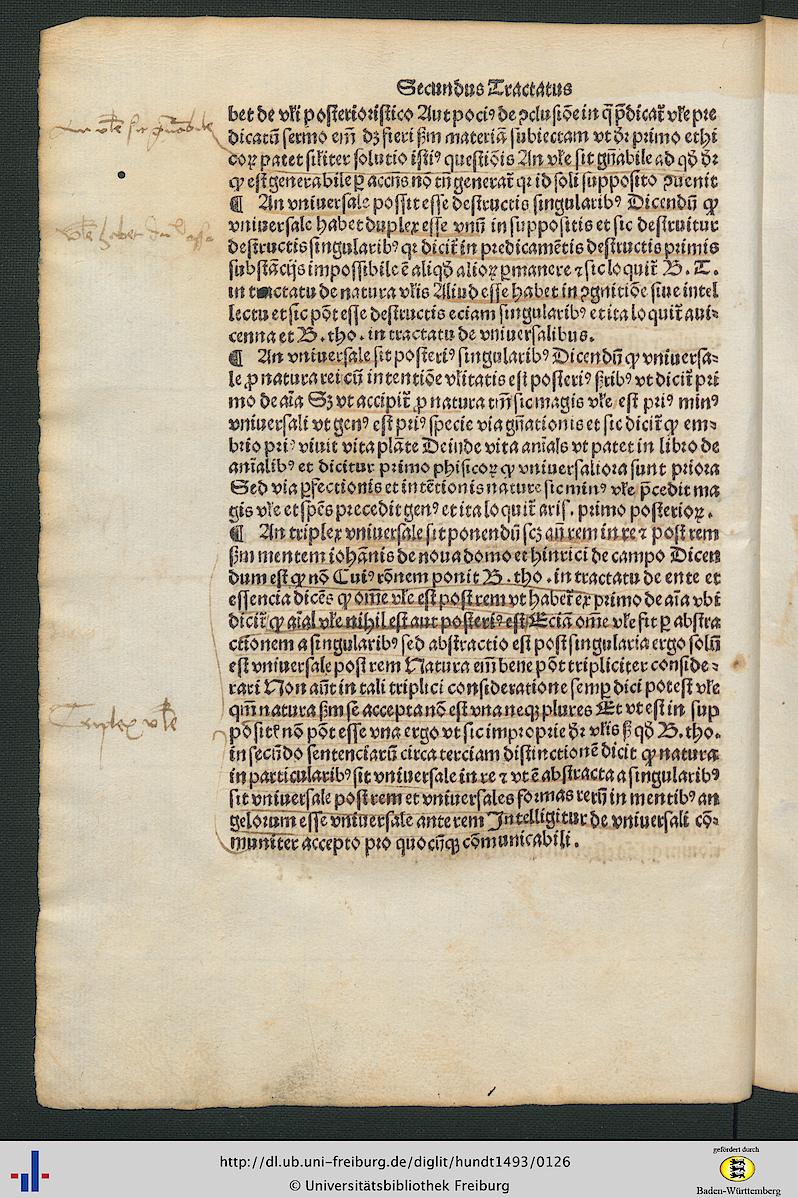 Secundus Tractatus
bet de vłi posterioristico Aut pociꝰ de ꝯclusiōe in q̄ p̄dicat᷑ vłe pre
dicatū sermo em̄ dꝫ fieri ẜm materiā subiectam vt dr̄ primo ethi
coꝝ patet siłiter solutio istiꝰ questiōis An vłe sit gn̄abile ad qd̄ dr̄
ꝙ est generabile ꝑ accn̄s nō tn̄ generat᷑ qr id soli supposito ꝯuenit
¶ An vniuersale possit esse destructis singularibꝰ Dicendū ꝙ
vniuersale habet duplex esse vnū in suppositis et sic destruitur
destructis singularibꝰ qr dicit᷑ in predicamētis destructis primis
substācijs impossibile ē aliqd̄ alioꝝ ꝑmanere ⁊ sic loquit᷑ B. T.
in tractatu de natura vłis Aliud esse habet in ꝯgnitiōe siue intel
lectu et sic pōt esse destructis eciam singularibꝰ et ita loquit᷑ aui⸗
cenna et B. tho. in tractatu de vniuersalibus.
¶ An vniuersale sit posteriꝰ singularibꝰ Dicendū ꝙ vniuersa⸗
le ꝓ natura rei cū intentiōe vłitatis est posteriꝰ ẜribꝰ vt dicit᷑ pri
mo de aīa Sꝫ vt accipit᷑ ꝓ natura tm̄ sic magis vłe est priꝰ minꝰ
vniuersali vt genꝰ est priꝰ specie via gn̄ationis et sic dicit᷑ ꝙ em⸗
brio priꝰ viuit vita plāte Deinde vita anīals vt patet in libro de
anīalibꝰ et dicitur primo phisicoꝝ ꝙ vniuersaliora sunt priora
Sed via ꝑfectionis et intētionis nature sic minꝰ vłe p̄cedit ma
gis vłe et spēs precedit genꝰ et ita loquit᷑ aris. primo posterioꝝ.
¶ An triplex vniuersale sit ponendū scꝫ an̄ rem in re ⁊ post rem
ẜm mentem iohānis de noua domo et hinrici de campo Dicen
dum est ꝙ nō Cuiꝰ rōnem ponit B. tho. in tractatu de ente et
essencia dicēs ꝙ om̄e vłe est post rem vt habet᷑ ex primo de aīa vbi
dicit᷑ ꝙ aīal vłe nihil est aut posteriꝰ est Eciā om̄e vłe fit ꝑ abstra
ctionem a singularibꝰ sed abstractio est post singularia ergo solū
est vniuersale post rem Natura em̄ bene pōt tripliciter conside⸗
rari Non aūt in tali triplici consideratione semꝑ dici potest vłe
qm̄ natura ẜm se accepta nō est vna neqꝫ plures Et vt est in sup
pōsit᷑ nō pōt esse vna ergo vt sic improprie dr̄ vłis ẜ qd̄ B. tho.
in secūdo sentenciarū circa terciam distinctionē dicit ꝙ natura
in particularibꝰ sit vniuersale in re ⁊ vt ē abstracta a singularibꝰ
sit vniuersale post rem et vniuersales formas rerū in mentibꝰ an
gelorum esse vniuersale ante rem Intelligitur de vniuersali cō⸗
muniter accepto pro quocūqꝫ cōmunicabili.
An vłe sit gn̄abile
Triplex vłe
http://dl.ub.uni-freiburg.de/diglit/hundt1493/0126
© Universitätsbibliothek Freiburg
gefördert durch
Baden-Württemberg